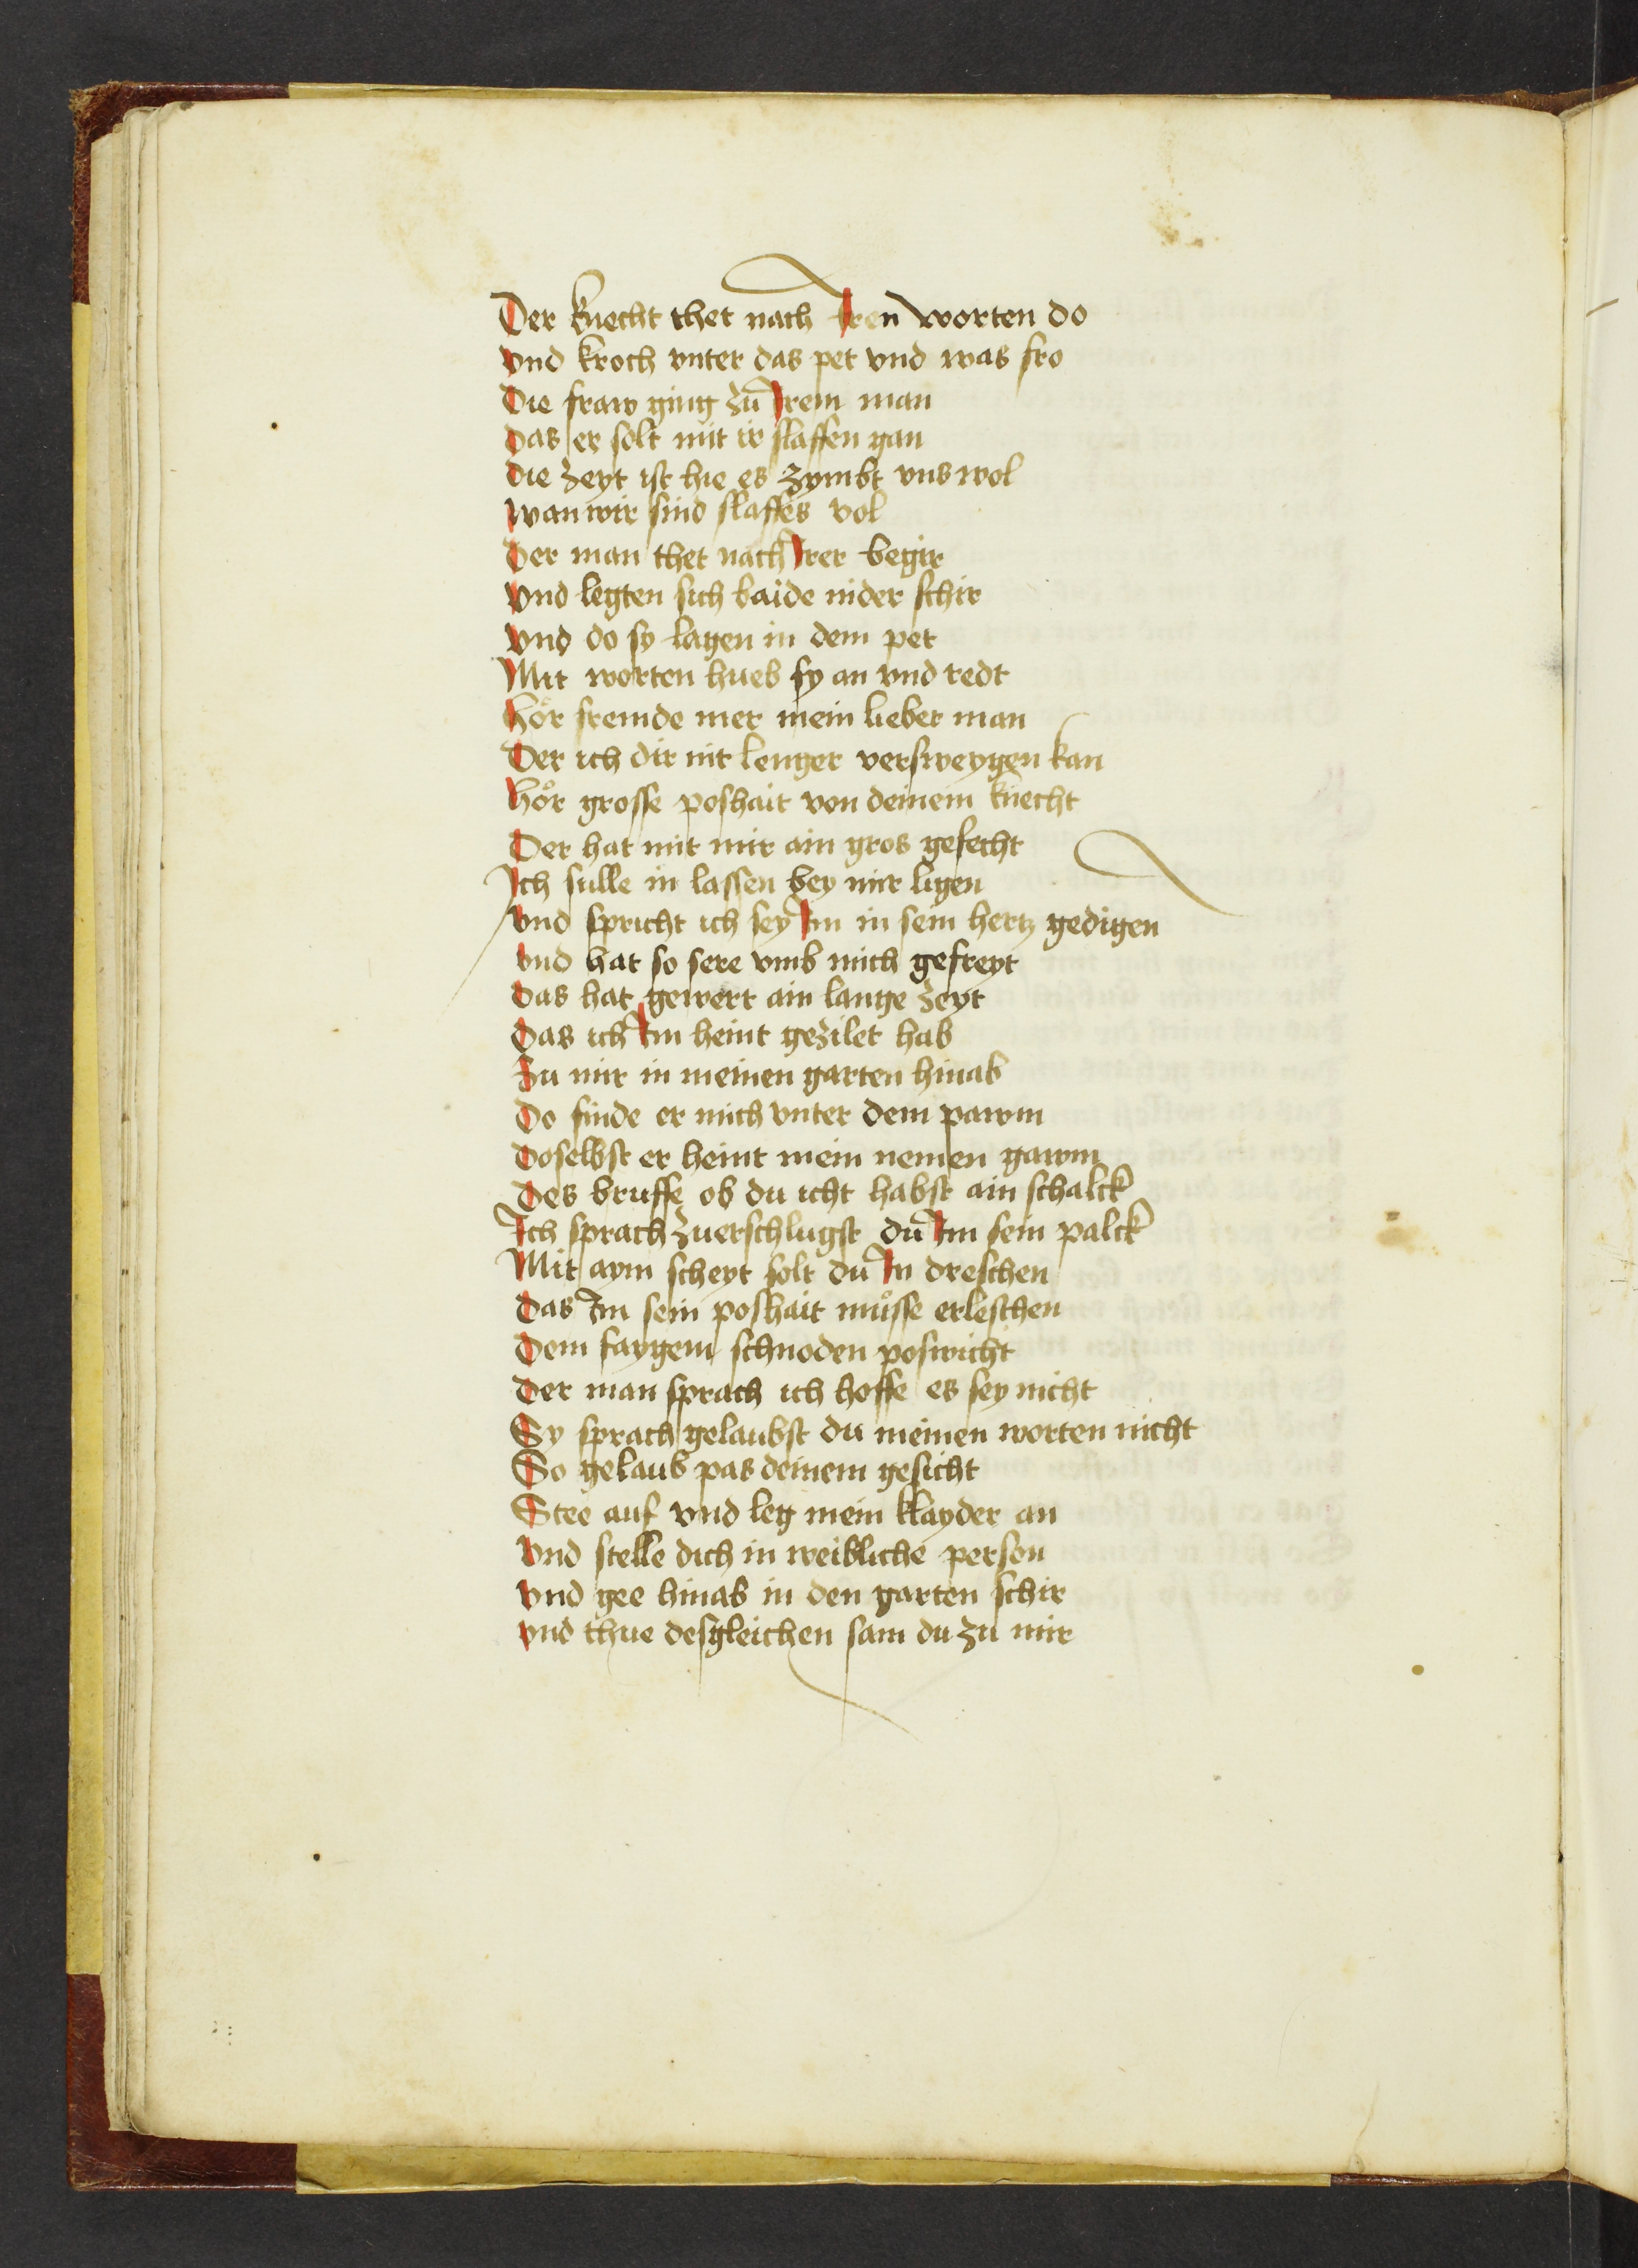 Der knecht thet nach Iren worten do
vnd kroch vnter das pet vnd was fro
Die fraw ging zů Irem man
Das er solt mit ir slaffen gan
die zeyt ist hie es zymbt vns wol
wan wir sind slaffes vol
Der man thet nach Irer begir
Vnd legten sich baide nider schir
Vnd do sy lagen in dem pet
Mit worten hueb sy an vnd redt
hör fremde mer mein lieber man
Der ich dir nit lenger versweygen kan
hör grosse poshait von deinem knecht
Der hat mit mir ain gros gefecht
Ich sulle in lassen bey mir ligen
Vnd spricht ich sey Im in sein hertz gedigen
vnd hat so sere vmb mich gefreyt
Das hat gewert ain lange zeyt
Das ich Im heint gezilet hab
Zu mir in meinen garten hinab
Do finde er mich vnter dem pawm
Doselbst er heint mein nemen gawm
Des bruffe ob du icht habst ain schalck
Ich sprach zuerschlugst du Im sein palck
Mit aym scheyt solt du In dreschen
Das Im sein poshait müsse erleschen
Dem faygem schnoden poswicht
Der man sprach ich hoffe es sey nicht
Sy sprach gelaubst du meinen worten nicht
So gelaub pas deinem gesicht
Stee auf vnd leg mein klayder an
Vnd stelle dich in weibliche person
vnd gee hinab in den garten schir
vnd thue desgleichen sam du zu mir